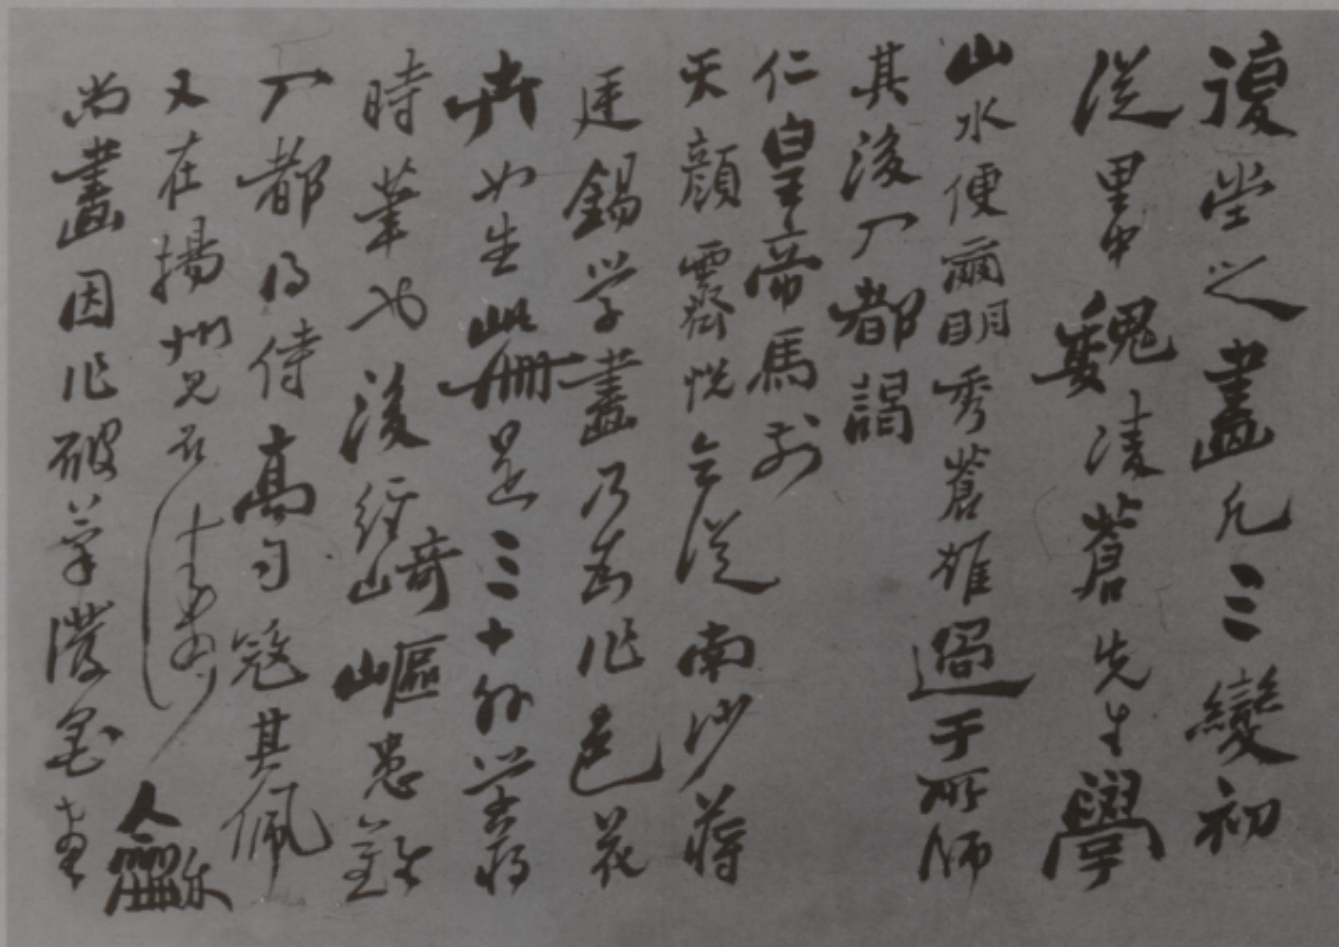 復堂之畫凡三變初
從里中魏凌蒼先生學
山水便爾明秀蒼雄過于所師
其後入都謁
仁皇帝馬前
天顏霽悅令從南沙蔣
廷錫学畫乃為作色花
卉如生此冊是三十外学蔣
時筆也後經崎嶇患難
入都得侍高司寇其佩
又在揚州見石濤龢
尚畫因作破筆潑墨畫